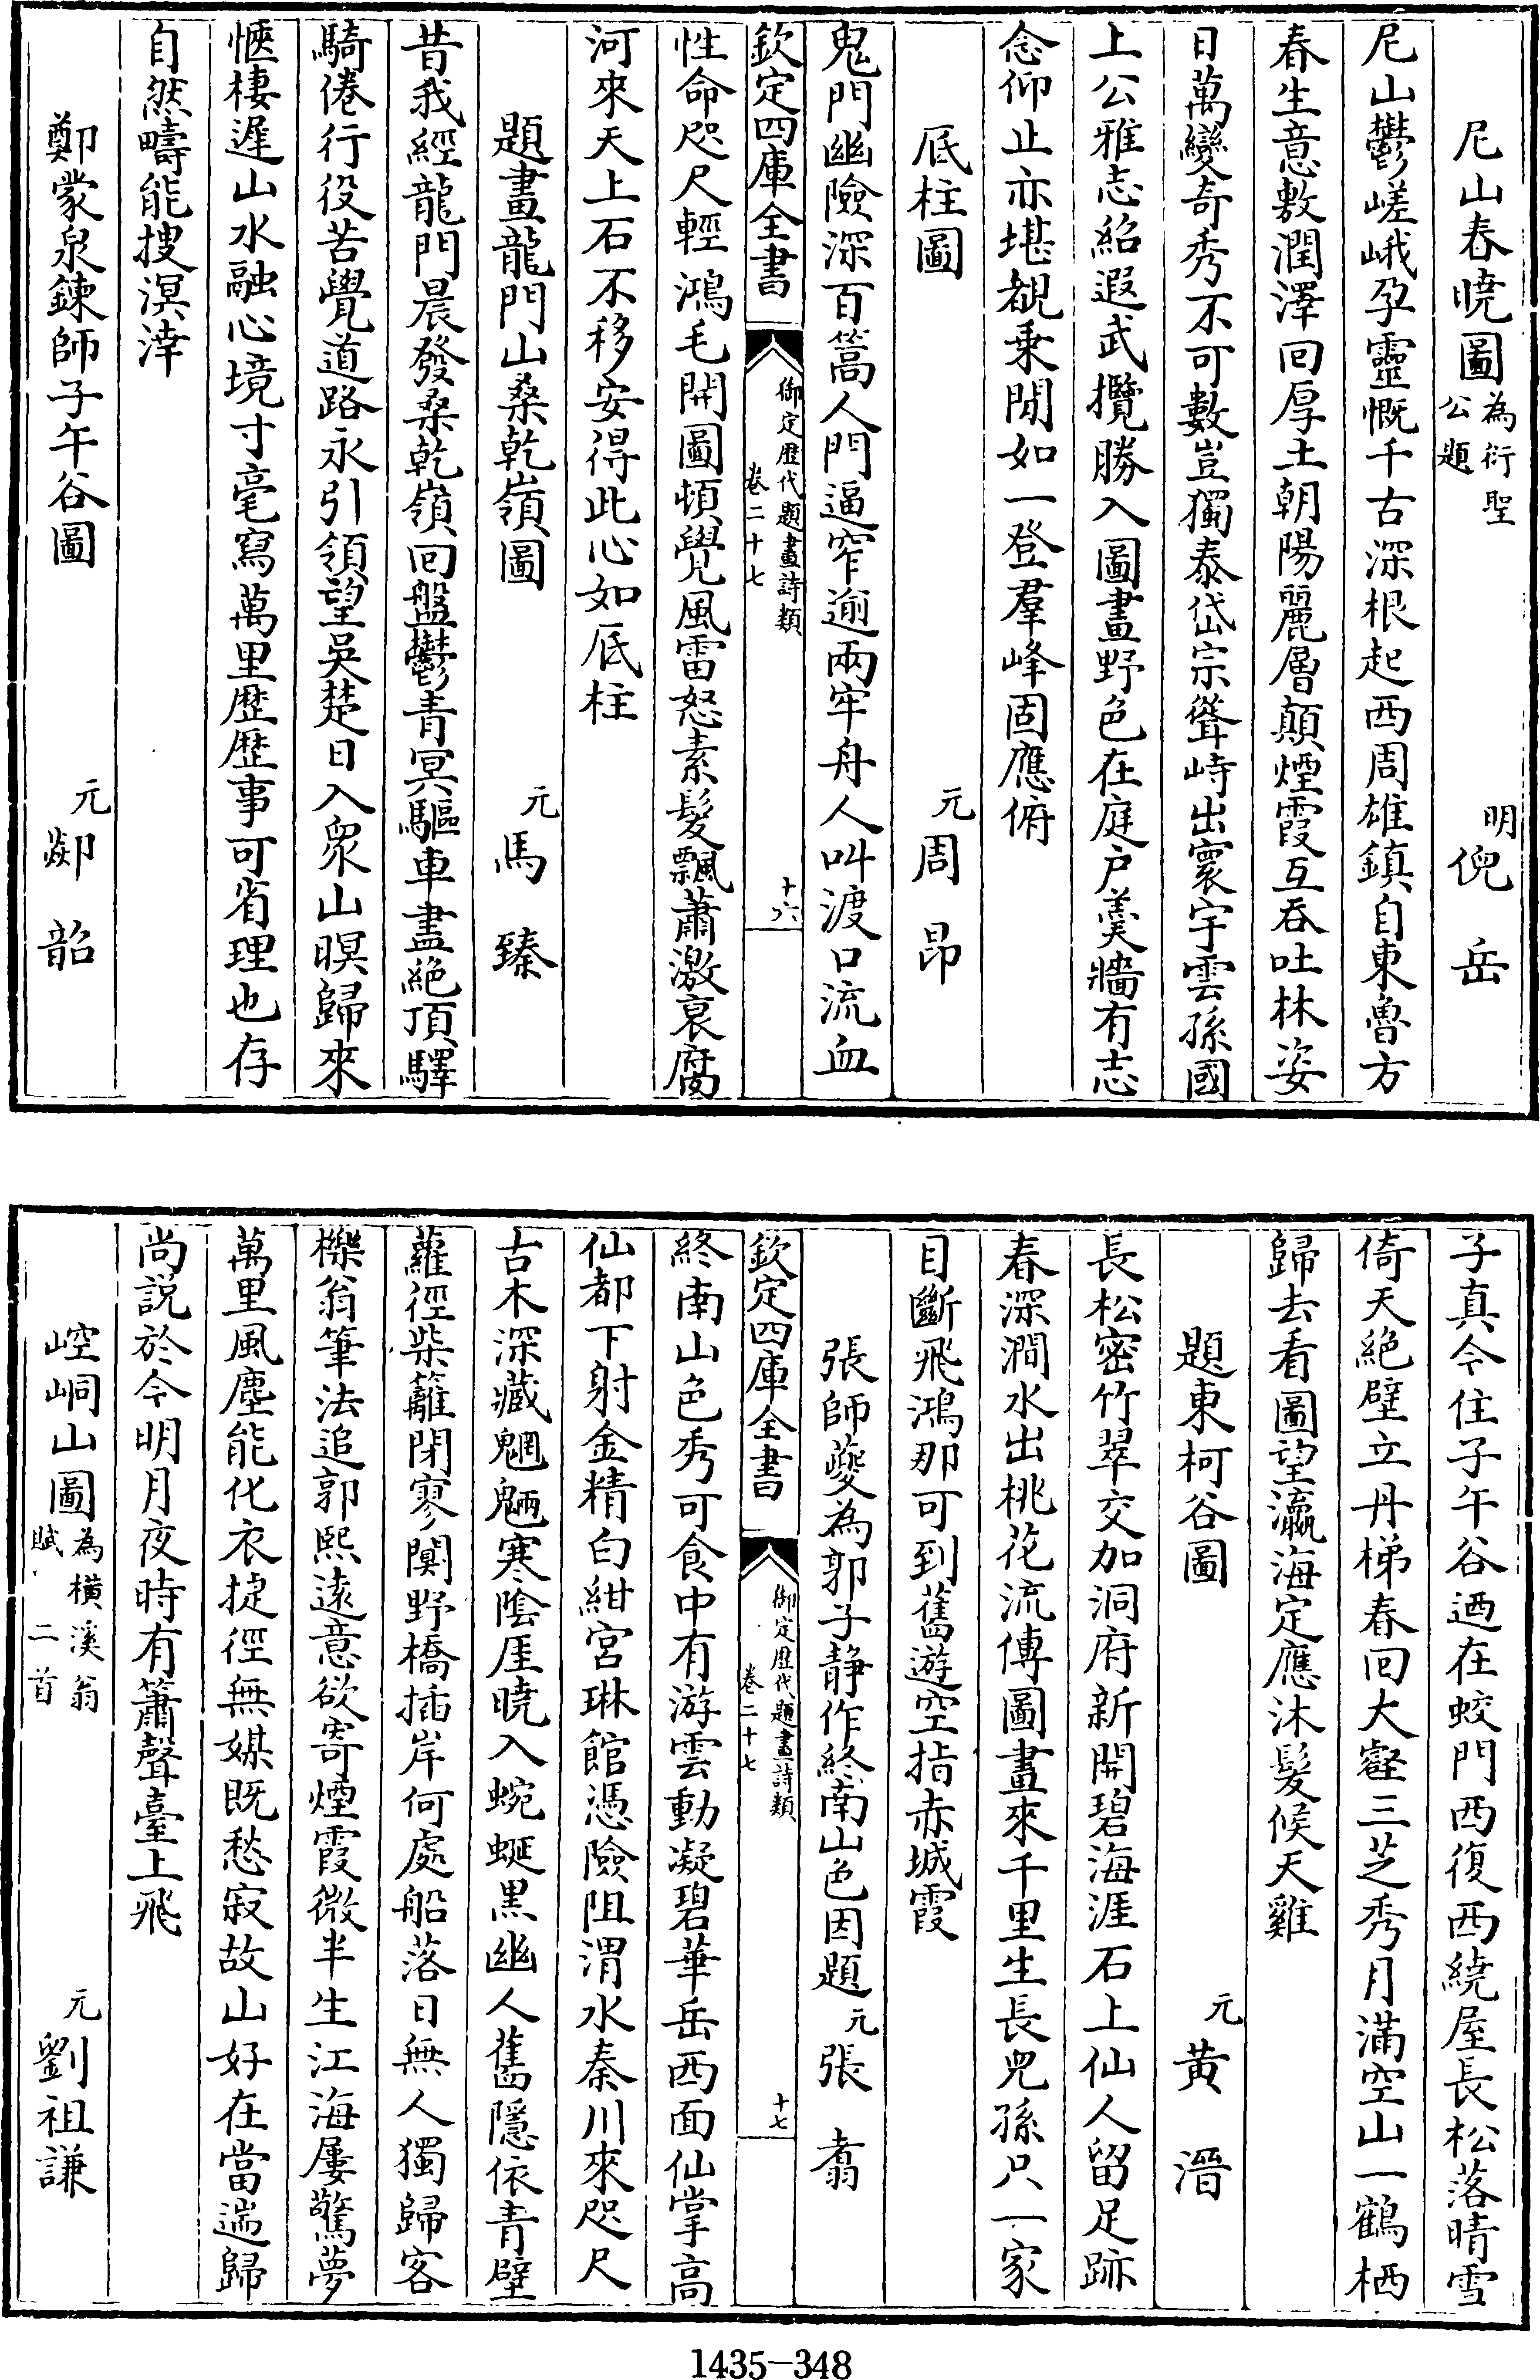 尼山春曉圖為衍聖公題　明倪岳
尼山鬱嵯峨孕靈慨千古深根起西周雄鎮自東魯方
春生意敷潤澤回厚土朝陽麗層顛煙霞互吞吐林姿
日萬變奇秀不可數豈獨泰岱宗聳峙出寰宇雲孫國
上公雅志紹遐武攬勝入圖畫野色在庭戶羮牆有志
念仰止亦堪覩乗閒如一登羣峰固應俯
厎柱圖　元周昂
鬼門幽險深百篙人門逼窄逾兩牢舟人叫渡口流血
欽定四庫全書　御定歴代題畫詩類　卷二十七　十六
性命咫尺輕鴻毛開圖頓覺風雷怒素髮飄蕭激哀腐
河來天上石不移安得此心如厎柱
題畫龍門山桑乾嶺圖　元馬臻
昔我經龍門晨發桑乾嶺回盤鬱青冥驅車盡絶頂驛
騎倦行役苦覺道路永引領望吳楚日入衆山暝歸來
愜棲遲山水融心境寸毫寫萬里歴歴事可省理也存
自然疇能搜溟涬
鄭蒙泉鍊師子午谷圖　元郯韶
子真今住子午谷迺在蛟門西復西繞屋長松落晴雪
倚天絶壁立丹梯春回大壑三芝秀月滿空山一鶴栖
歸去看圖望瀛海定應沐髮候天雞
題東柯谷圖　元黃溍
長松密竹翠交加洞府新開碧海涯石上仙人留足跡
春深澗水出桃花流傳圖畫來千里生長兒孫只一家
目斷飛鴻那可到舊遊空指赤城霞
張師夔為郭子靜作終南山色因題　元張翥
欽定四庫全書　御定歴代題畫詩類　卷二十七　十七
終南山色秀可食中有游雲動凝碧華岳西面仙掌高
仙都下射金精白紺宮琳館憑險阻渭水秦川來咫尺
古木深藏魍魎寒陰厓曉入蜿蜒黑幽人舊隱依青壁
蘿徑柴籬閉寥闃野橋插岸何處船落日無人獨歸客
櫟翁筆法追郭熙遠意欲寄煙霞微半生江海屢驚夢
萬里風塵能化衣捷徑無媒既愁寂故山好在當遄歸
尚説於今明月夜時有簫聲臺上飛
崆峒山圖為橫溪翁賦二首　元劉祖謙
1435-348